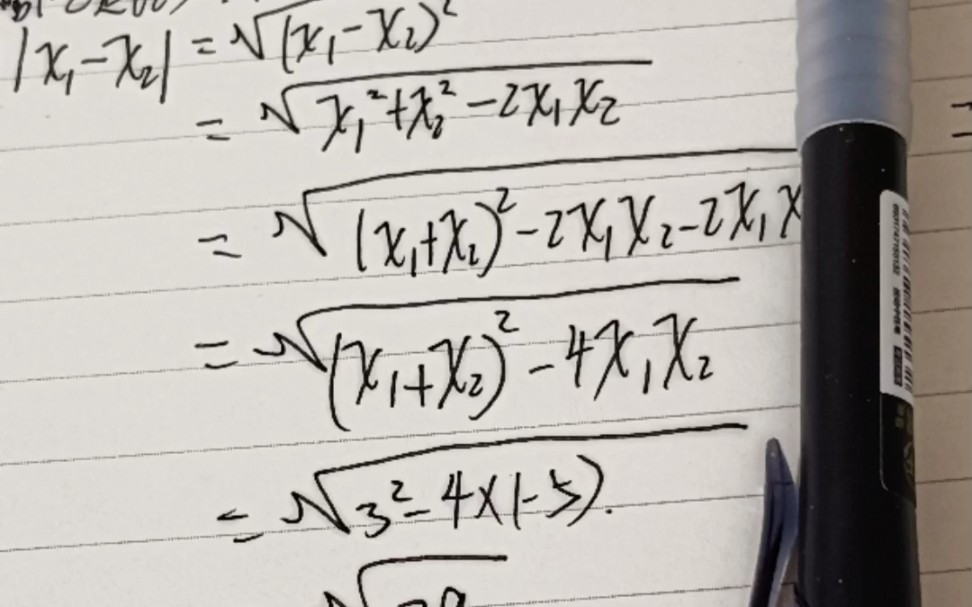 |x₁-x₂| = √(x₁-x₂)²
= √x₁²+x₂²-2x₁x₂
= √(x₁+x₂)²-2x₁x₂-2x₁x
= √(x₁+x₂)²-4x₁x₂
= √3²-4×(-5).